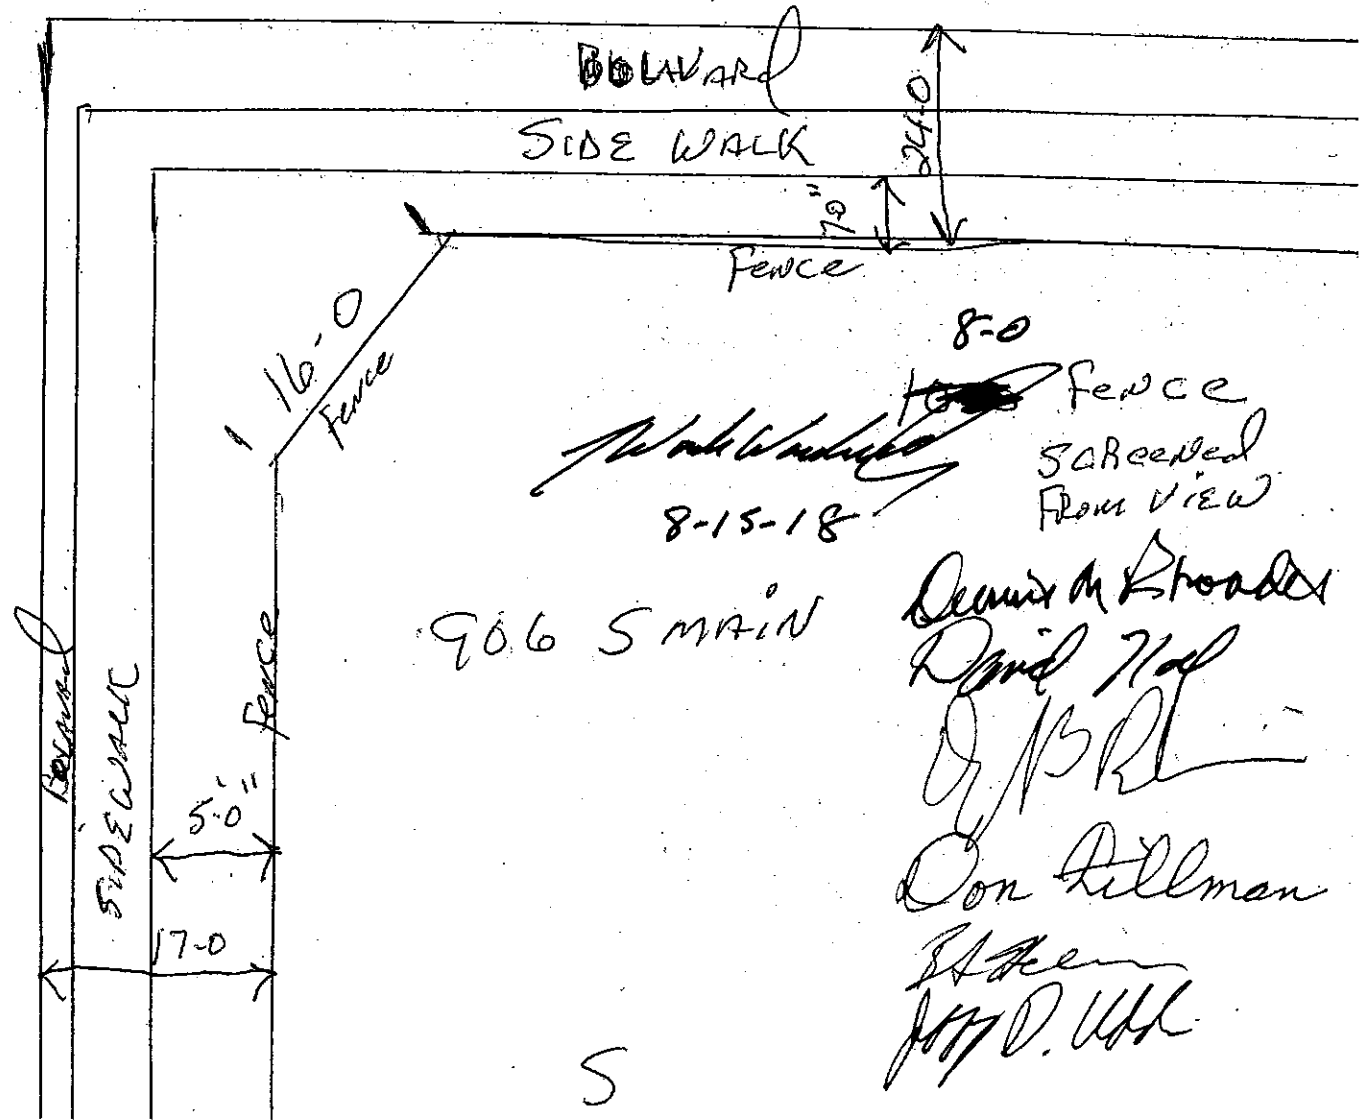 BOLVARd
SIDE WALK
24-0
7'0"
Fence
16-0
Fence
8-0
Fence
SCReeNed
FROM VIEW
8-15-18
906 S MAIN
Dennis M Rhoades
David Noel
Don Tillman
Fence
SIDEWALK
5'-0"
17-0
S